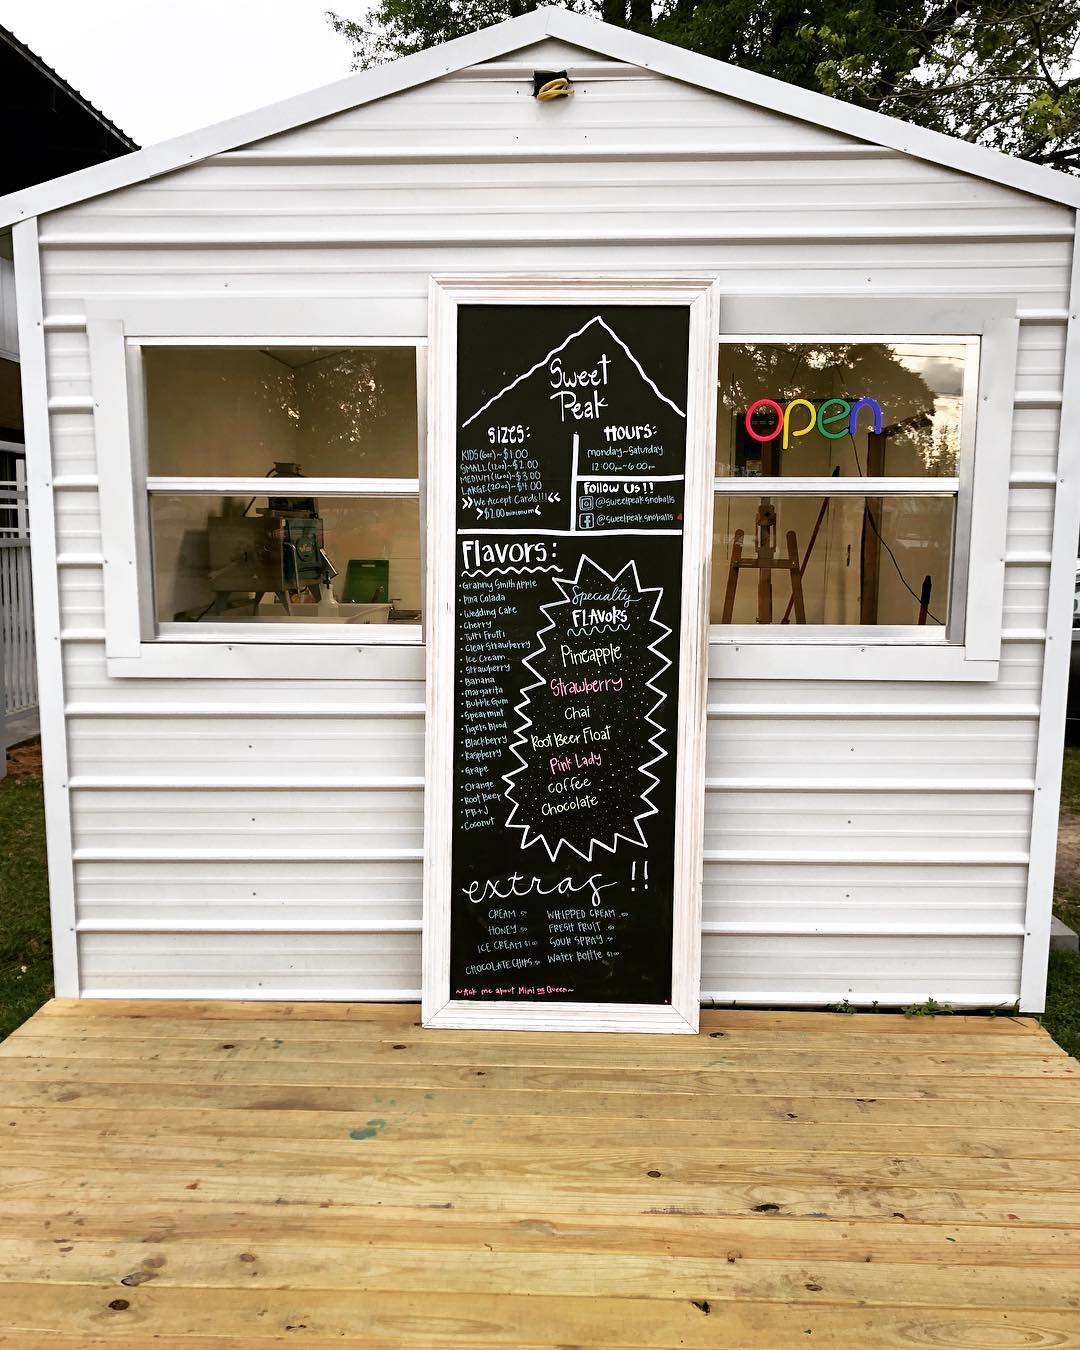 Sweet
Peak
Sizes:
KIDS (6oz) ~ $1.00
SMALL (12oz) ~ $2.00
MEDIUM (16oz) ~ $3.00
LARGE (20oz) ~ $4.00
>> We Accept Cards!!! <<
> $2.00 minimum <
Hours:
Monday~Saturday
12:00pm~6:00pm
Follow Us!!
@sweetpeaksnoballs
@sweetpeaksnoballs
open
Flavors:
• Granny Smith Apple
• Pina Colada
• Wedding Cake
• Cherry
• Tutti Frutti
• Clear Strawberry
• Ice Cream
• Strawberry
• Banana
• Margarita
• Bubble Gum
• Spearmint
• Tigers Blood
• Blackberry
• Raspberry
• Grape
• Orange
• Root Beer
• PB+J
• Coconut
Specialty
FLAVORS
Pineapple
Strawberry
Chai
Root Beer Float
Pink Lady
Coffee
Chocolate
extras !!
CREAM .50 WHIPPED CREAM .50
HONEY .50 FRESH FRUIT .50
ICE CREAM $1.00 SOUR SPRAY .50
CHOCOLATE CHIPS .50 Water Bottle $1.00
~Ask me about Mimi Queen~